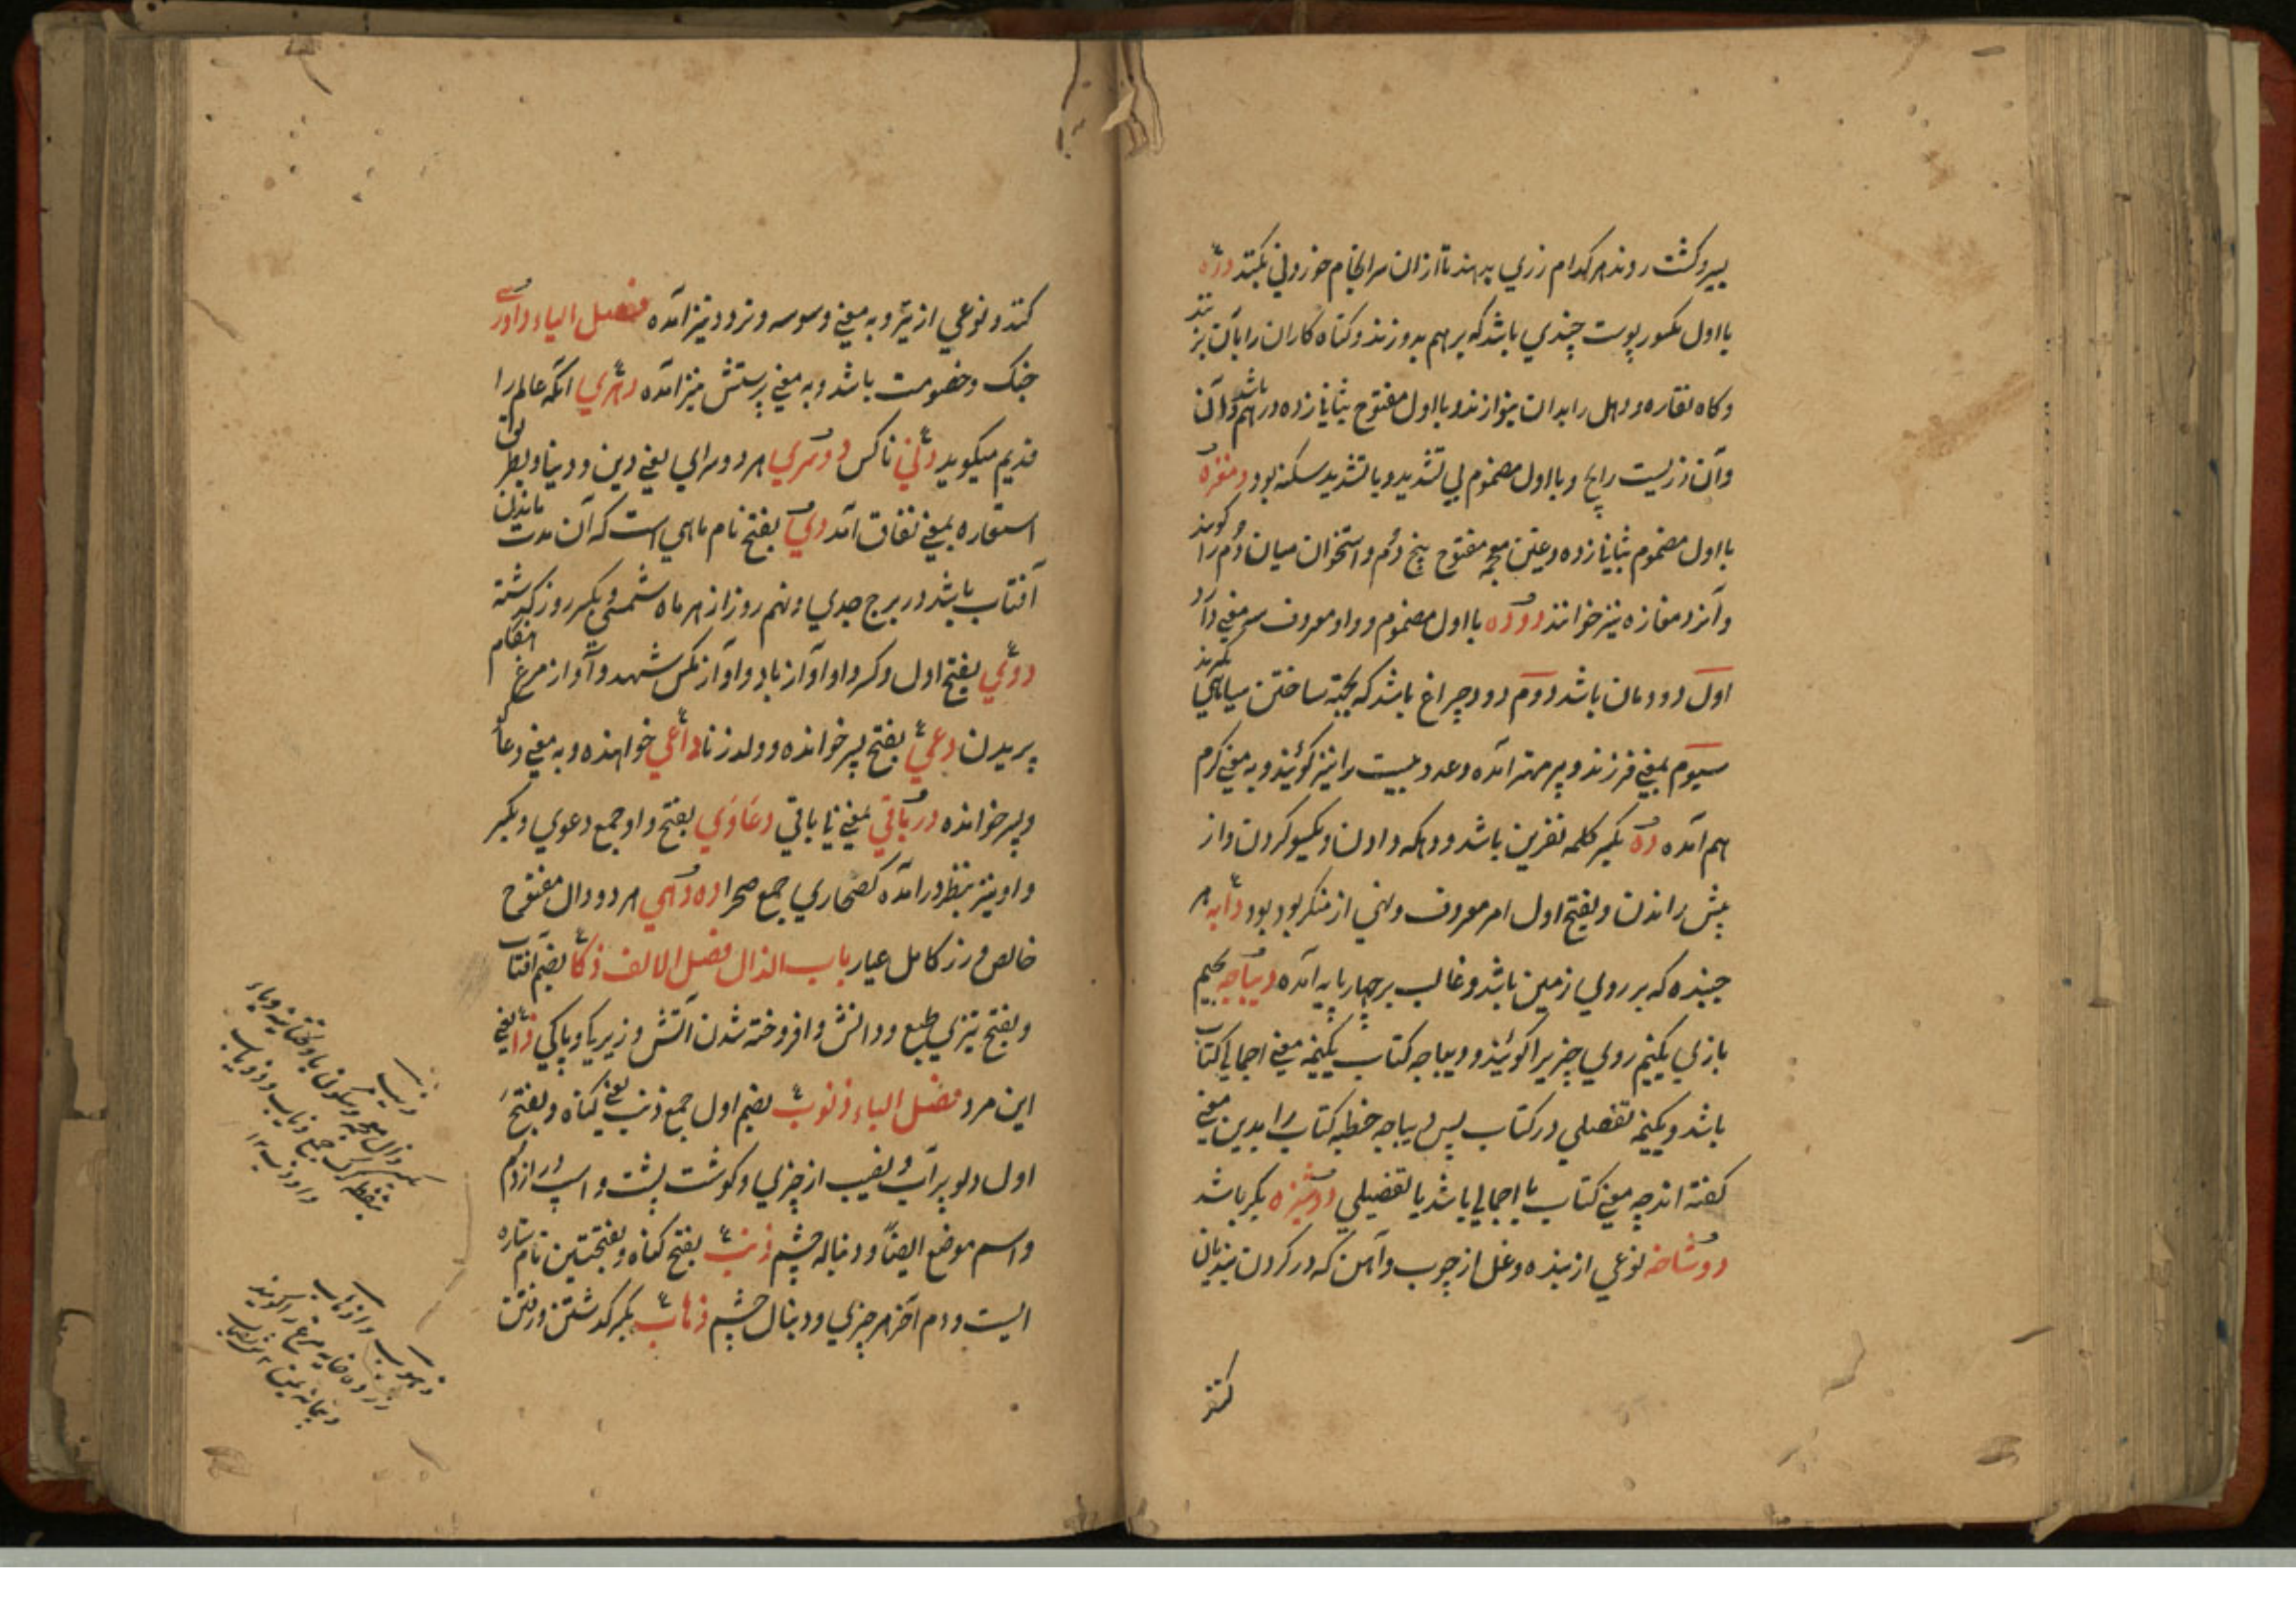 بسیر و کشت روند هر کدام زری بدهند تا ازان سرانجام خوردنی بکنند درّه
با اول مکسور پوست چندی باشد که بر هم بدوزند و کناه کاران را بآن بزنند
و کاه نقاره و دهل را بدان بنوازند و با اول مفتوح بثانی زده درهم باشد
وآن زریست رایج و با اول مضموم بی تشدید و با تشدید سکنه بود دمغزه
با اول مضموم بثانی زده و غین معجمه مفتوح بیخ دُم و استخوان میان دُم را کویند
و آنرا دمغازه نیز خوانند دوده با اول مضموم و واو معروف سه معنی دارد
اول دودمان باشد دوم دود چراغ باشد که بجهة ساختن سیاهی بگیرند
سیوم بمعنی فرزند و پسر مهتر آمده و عدد بیست را نیز کویند و به معنی کرم
هم آمده ده بکسر کلمه نفرین باشد و دهکه دادن و یکسو کردن و از
پیش راندن و بفتح اول امر معروف و نهی از منکر بود دابه هر
جنبنده که بر روی زمین باشد و غالب بر چهار پایه آمده دیباجه بجیم
تازی یکنیم روی چیزیرا کویند و دیباجه کتاب یکنیمه معنی اجمالی کتاب
باشد و یکنیمه تفصیلی در کتاب پس دیباجه خطبه کتاب را بدین معنی
کفته اند چه معنی کتاب یا اجمالی باشد یا تفصیلی دوشیزه بکر باشد
دوشاخه نوعی از بنده و غل از چوب و آهن که در کردن بندیان
کنند
کنند و نوعی از تیر و به معنی وسوسه و تردد نیز آمده فصل الیاء داوری
جنک و خصومت باشد و به معنی پرستش نیز آمده دهری انکه عالم را
قدیم میکوید دنی ناکس دوسری هر دو سرای یعنی دین و دنیا و بطریق
استعاره بمعنی نفاق آمد دی بفتح نام ماهی است که آن مدت ماندن
آفتاب باشد در برج جدی و نهم روز از هر ماه شمسی و بکسر روز کذشته
دوی بفتح اول و کسر واو آواز باد و آواز مکس شهد و آواز مرغ هنکام
پریدن دعی بفتح پسر خوانده و ولد زنا داعی خواهنده و به معنی دعا کو
و پسر خوانده درباقی بمعنی نا باقی دعاوی بفتح واو جمع دعوی و بکسر
واو نیز بنظر درآمده کصحاری جمع صحرا ده دهی هر دو دال مفتوح
خالص و زر کامل عیار باب الذال فصل الالف ذکا بضم آفتاب
و بفتح تیزی طبع و دانش و افروخته شدن آتش و زیرکی و پاکی ذا یعنی
این مرد فصل الباء ذنوب بضم اول جمع ذنب یعنی کناه و بفتح
اول دلو پر آب و نصیب از چیزی و کوشت پشت و اسپ دراز دُم
و اسم موضع ایضاً و دنباله چشم ذنب بفتح کناه و بفتحتین نام ستاره
ایست و دم آخر هر چیزی و دنبال چشم ذهاب بکسر کذشتن و رفتن
ذئب
بکسر ذال معجمه و سکون یاء تحتانیه و باء
منقطه کرک جمع ذیاب و ذؤبان
و اذؤب ١٢
ذهوب و اذهاب
زرده خایه مرغ را کویند
و پیمانه یمن